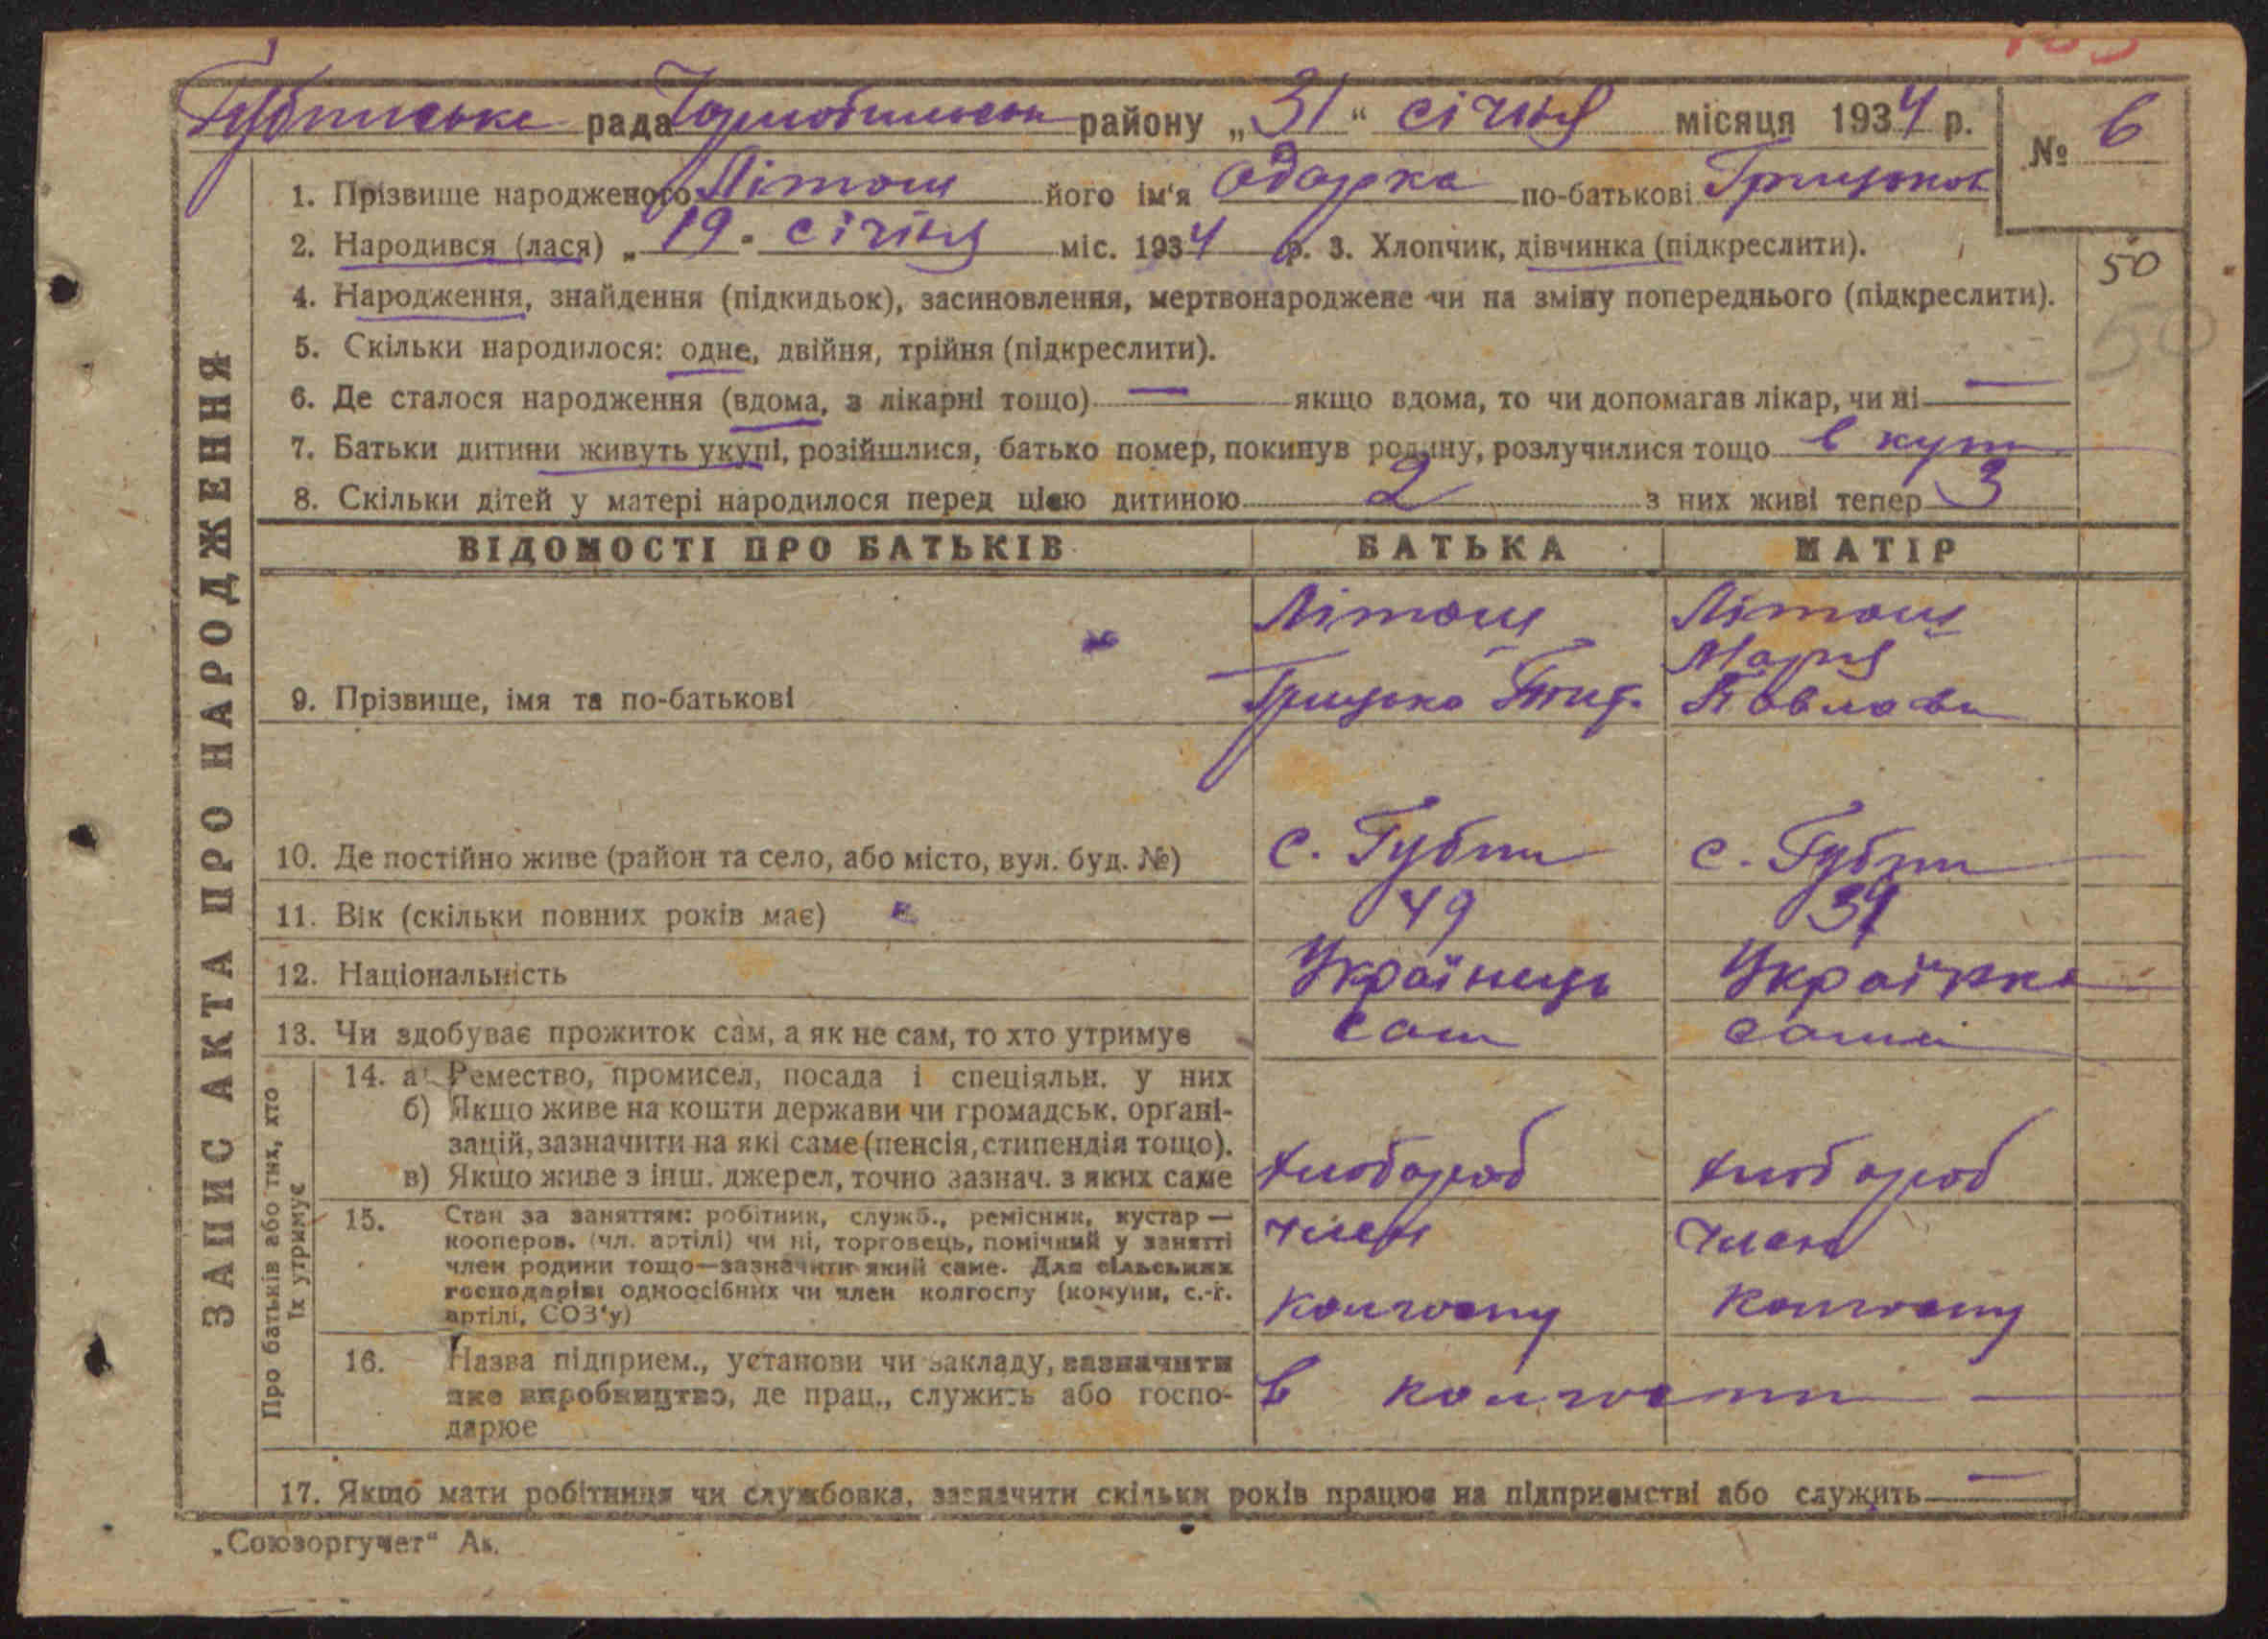 Губинська рада Чорнобильськ району „31“ січня місяця 1934 р.
№ 6
1. Прізвище народженого Літош його ім'я Одарка по-батькові Грицьков
2. Народився (лася) „19 - січня міс. 1934 р. 3. Хлопчик, дівчинка (підкреслити).
50
4. Народження, знайдення (підкидьок), засиновлення, мертвонароджене чи на зміну попереднього (підкреслити).
50
5. Скільки народилося: одне, двійня, трійня (підкреслити).
6. Де сталося народження (вдома, з лікарні тощо) — якщо вдома, то чи допомагав лікар, чи ні —
7. Батьки дитини живуть укупі, розійшлися, батько помер, покинув родину, розлучилися тощо в купі
8. Скільки дітей у матері народилося перед цією дитиною 2 з них живі тепер 3
ВІДОМОСТІ ПРО БАТЬКІВ БАТЬКА МАТІР
Літош Літош
Марія
9. Прізвище, імя та по-батькові Грицько Павлова
10. Де постійно живе (район та село, або місто, вул. буд. №) с. Губин с. Губин
11. Вік (скільки повних років має) 49
12. Національність Українець Українка
13. Чи здобуває прожиток сам, а як не сам, то хто утримує сам сама
14. а) Ремество, промисел, посада і спеціяльн. у них
б) Якщо живе на кошти держави чи громадськ. органі-
зацій, зазначити на які саме (пенсія, стипендія тощо).
в) Якщо живе з інш. джерел, точно зазнач. з яких саме хлібороб хлібороб
15. Стан за заняттям: робітник, служб., ремісник, кустар —
кооперов. (чл. артілі) чи ні, торговець, помічний у занятті член член
член родини тощо—зазначити який саме. Для сільських
господарів: одноосібних чи член колгоспу (комуни, с.-г. колгоспу колгоспу
артілі, СОЗ'у)
16. Назва підприєм., установи чи закладу, зазначити
яке виробництво, де прац., служить або госпо- в колгоспі —
дарює
17. Якщо мати робітниця чи службовка, зазначити скільки років працює на підприємстві або служить —
ЗАПИС АКТА ПРО НАРОДЖЕННЯ
Про батьків або тих, хто
їх утримує
„Союзоргучет“ Ак.